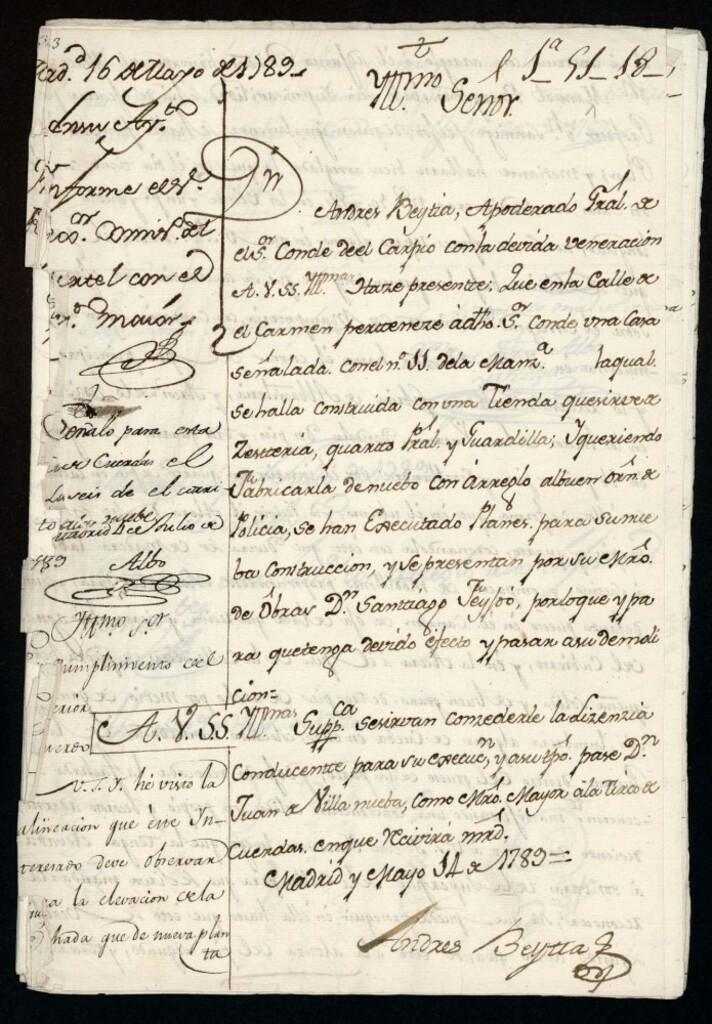 Mad.d 16 de Mayo de 1789
En su Ay.to
Informe el S.r
Comis.o del
Quartel con el
M.ro Mayor
Señalo para esta
tira de Cuerdas el
Lu seis de el corri-
te año nuebe
Madrid 4 de Julio de
789
Albo
Yllmo S.or
Cumplimiento del
V.S.Y. he visto la
alineacion que este In-
teresado deve observar
pa la elevacion de la
fachada que de nueva plan
ta
1a 51 18
Yllmo Señor
S.or
Dn Andres Beytia, Apoderado Gral. de
el S.or Conde de el Carpio con la devida veneracion
A. V. SS. Yllma Haze presente: Que en la Calle de
el Carmen pertenece a dho. S.or Conde una Casa
señalada con el n.o 11 de la Manz.a la qual
se halla construida con una Tienda que sirve de
Zestteria, quarto Pral. y Guardilla; y queriendo
Fabricarla de nuebo con Arreglo al buen orn. de
Policia, se han Executado Planes para su nue
ba construccion, y se presentan por su Mro.
de Obras D.n Santiago Feyjoó, por lo que y pa
ra que tenga devido efecto y pasar a su demoli
cion=
A. V. SS. Yllmas Supp.ca se sirvan conzederle la lizenzia
Conducentte para su execuc.n, y a su tpo. pase D.n
Juan de Villanueba, como Mro. Mayor a la Tira de
Cuerdas en que recivirá mrd.
Madrid y Mayo 14 de 1789=
Andres Beytia